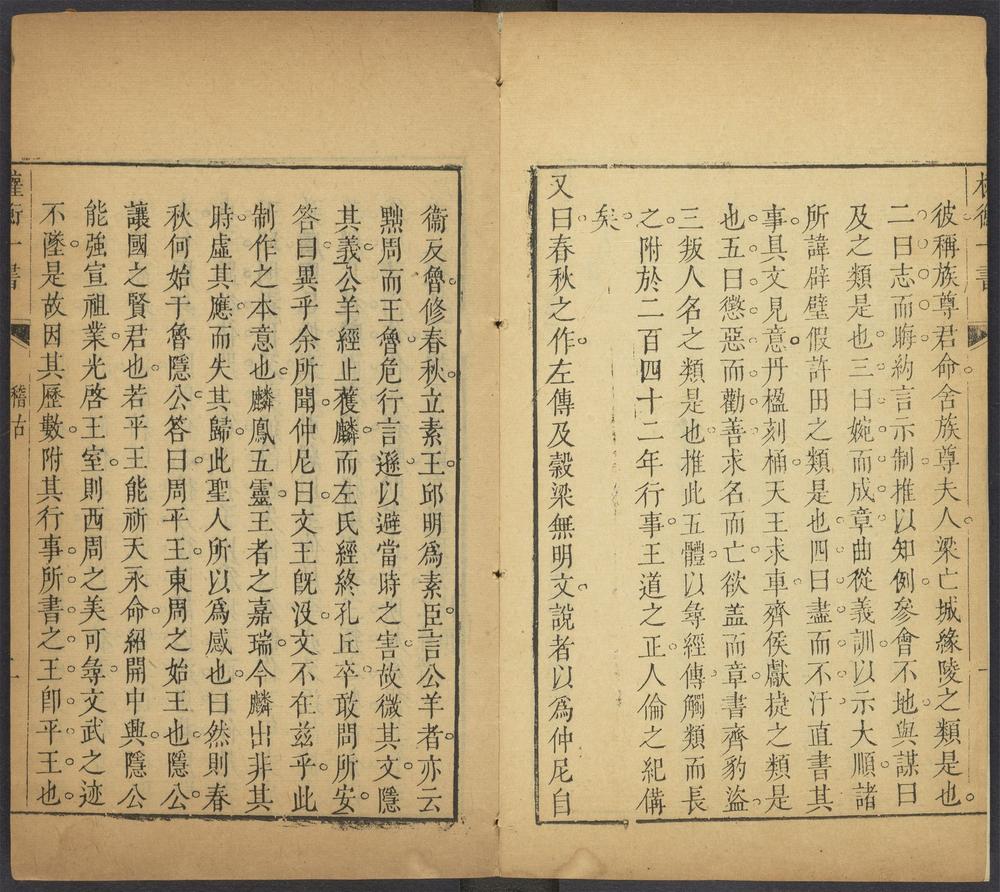 彼稱族尊君命舍族尊夫人梁亡城緣陵之類是也
二曰志而晦約言示制推以知例參會不地與謀曰
及之類是也三曰婉而成章曲從義訓以示大順諸
所諱辟璧假許田之類是也四曰盡而不汙直書其
事具文見意丹楹刻桷天王求車齊侯獻捷之類是
也五曰懲惡而勸善求名而亡欲盖而章書齊豹盜
三叛人名之類是也推此五體以㝷經傳觸類而長
之附於二百四十二年行事王道之正人倫之紀備
矣
又曰春秋之作左傳及穀梁無明文說者以爲仲尼自
衞反魯修春秋立素王邱明爲素臣言公羊者亦云
黜周而王魯危行言遜以避當時之害故微其文隱
其義公羊經止獲麟而左氏經終孔丘卒敢問所安
答曰異乎余所聞仲尼曰文王旣沒文不在茲乎此
制作之本意也麟鳳五靈王者之嘉瑞今麟出非其
時虛其應而失其歸此聖人所以爲感也曰然則春
秋何始于魯隱公答曰周平王東周之始王也隱公
讓國之賢君也若平王能祈天永命紹開中興隱公
能強宣祖業光啓王室則西周之美可㝷文武之迹
不墜是故因其歷數附其行事所書之王卽平王也
權衡一書
稽古